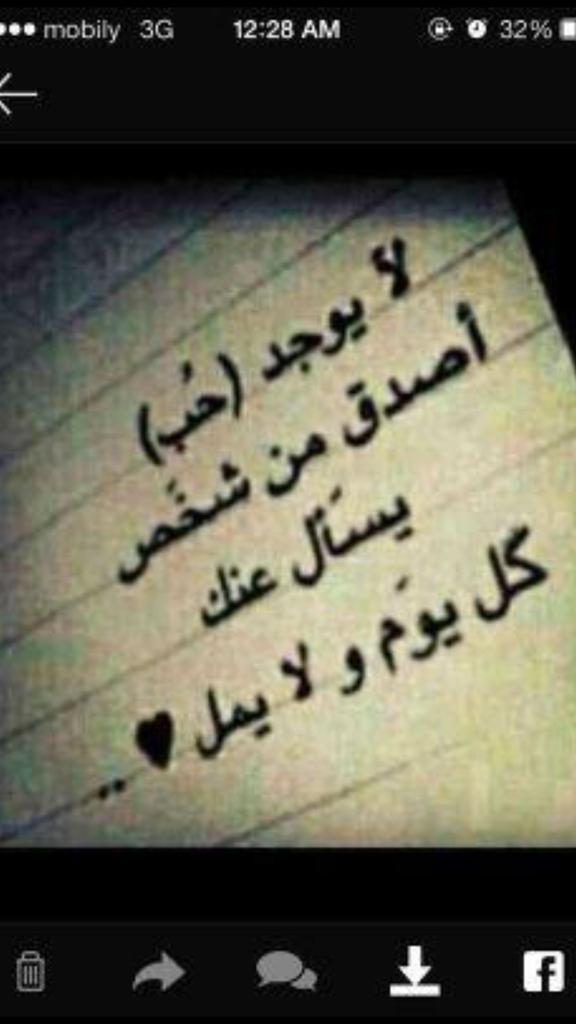 mobily 3G 12:28 AM 32%
لا يوجد (حُب)
أصدق من شخَص
يسَأل عنك
كل يوَم و لا يمل ♥ ..